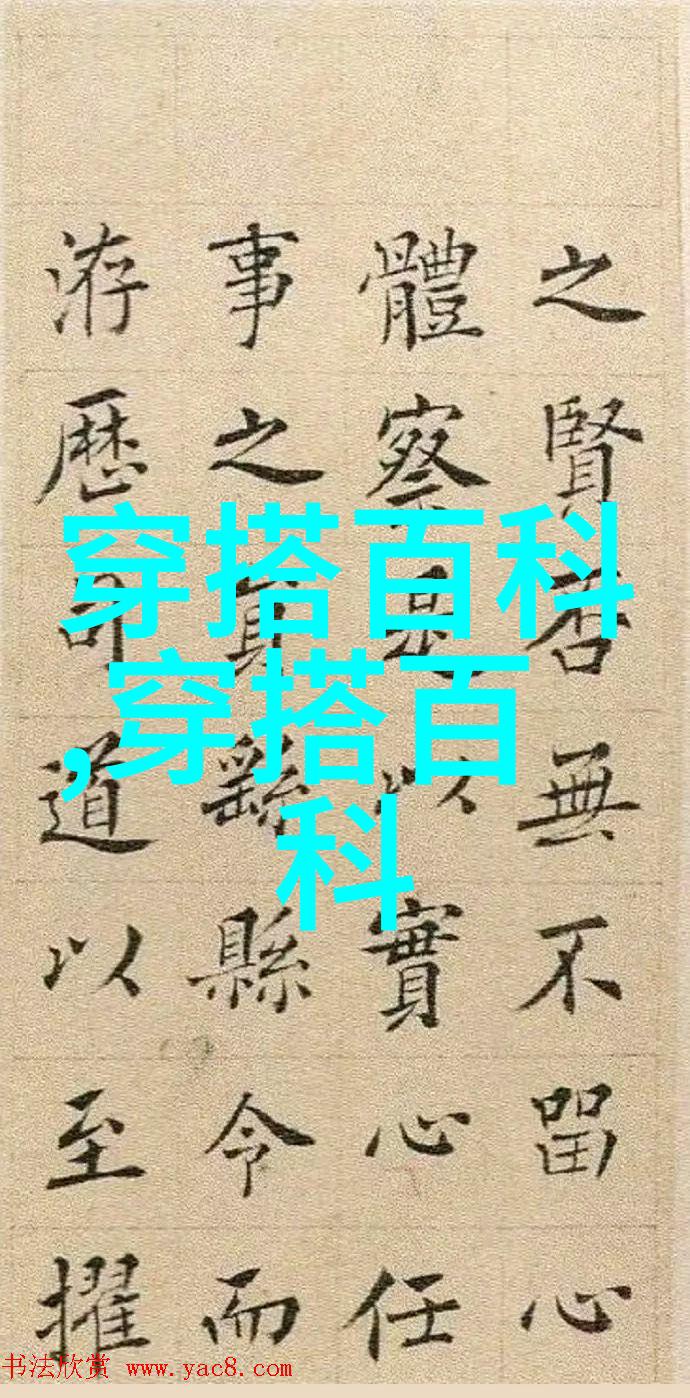 之賢否無不畱心
體察是以實心任
事之員繇縣令而
洊歷司道以至擢
穿搭百科
,穿搭百
科
书法欣赏 www.yac8.com